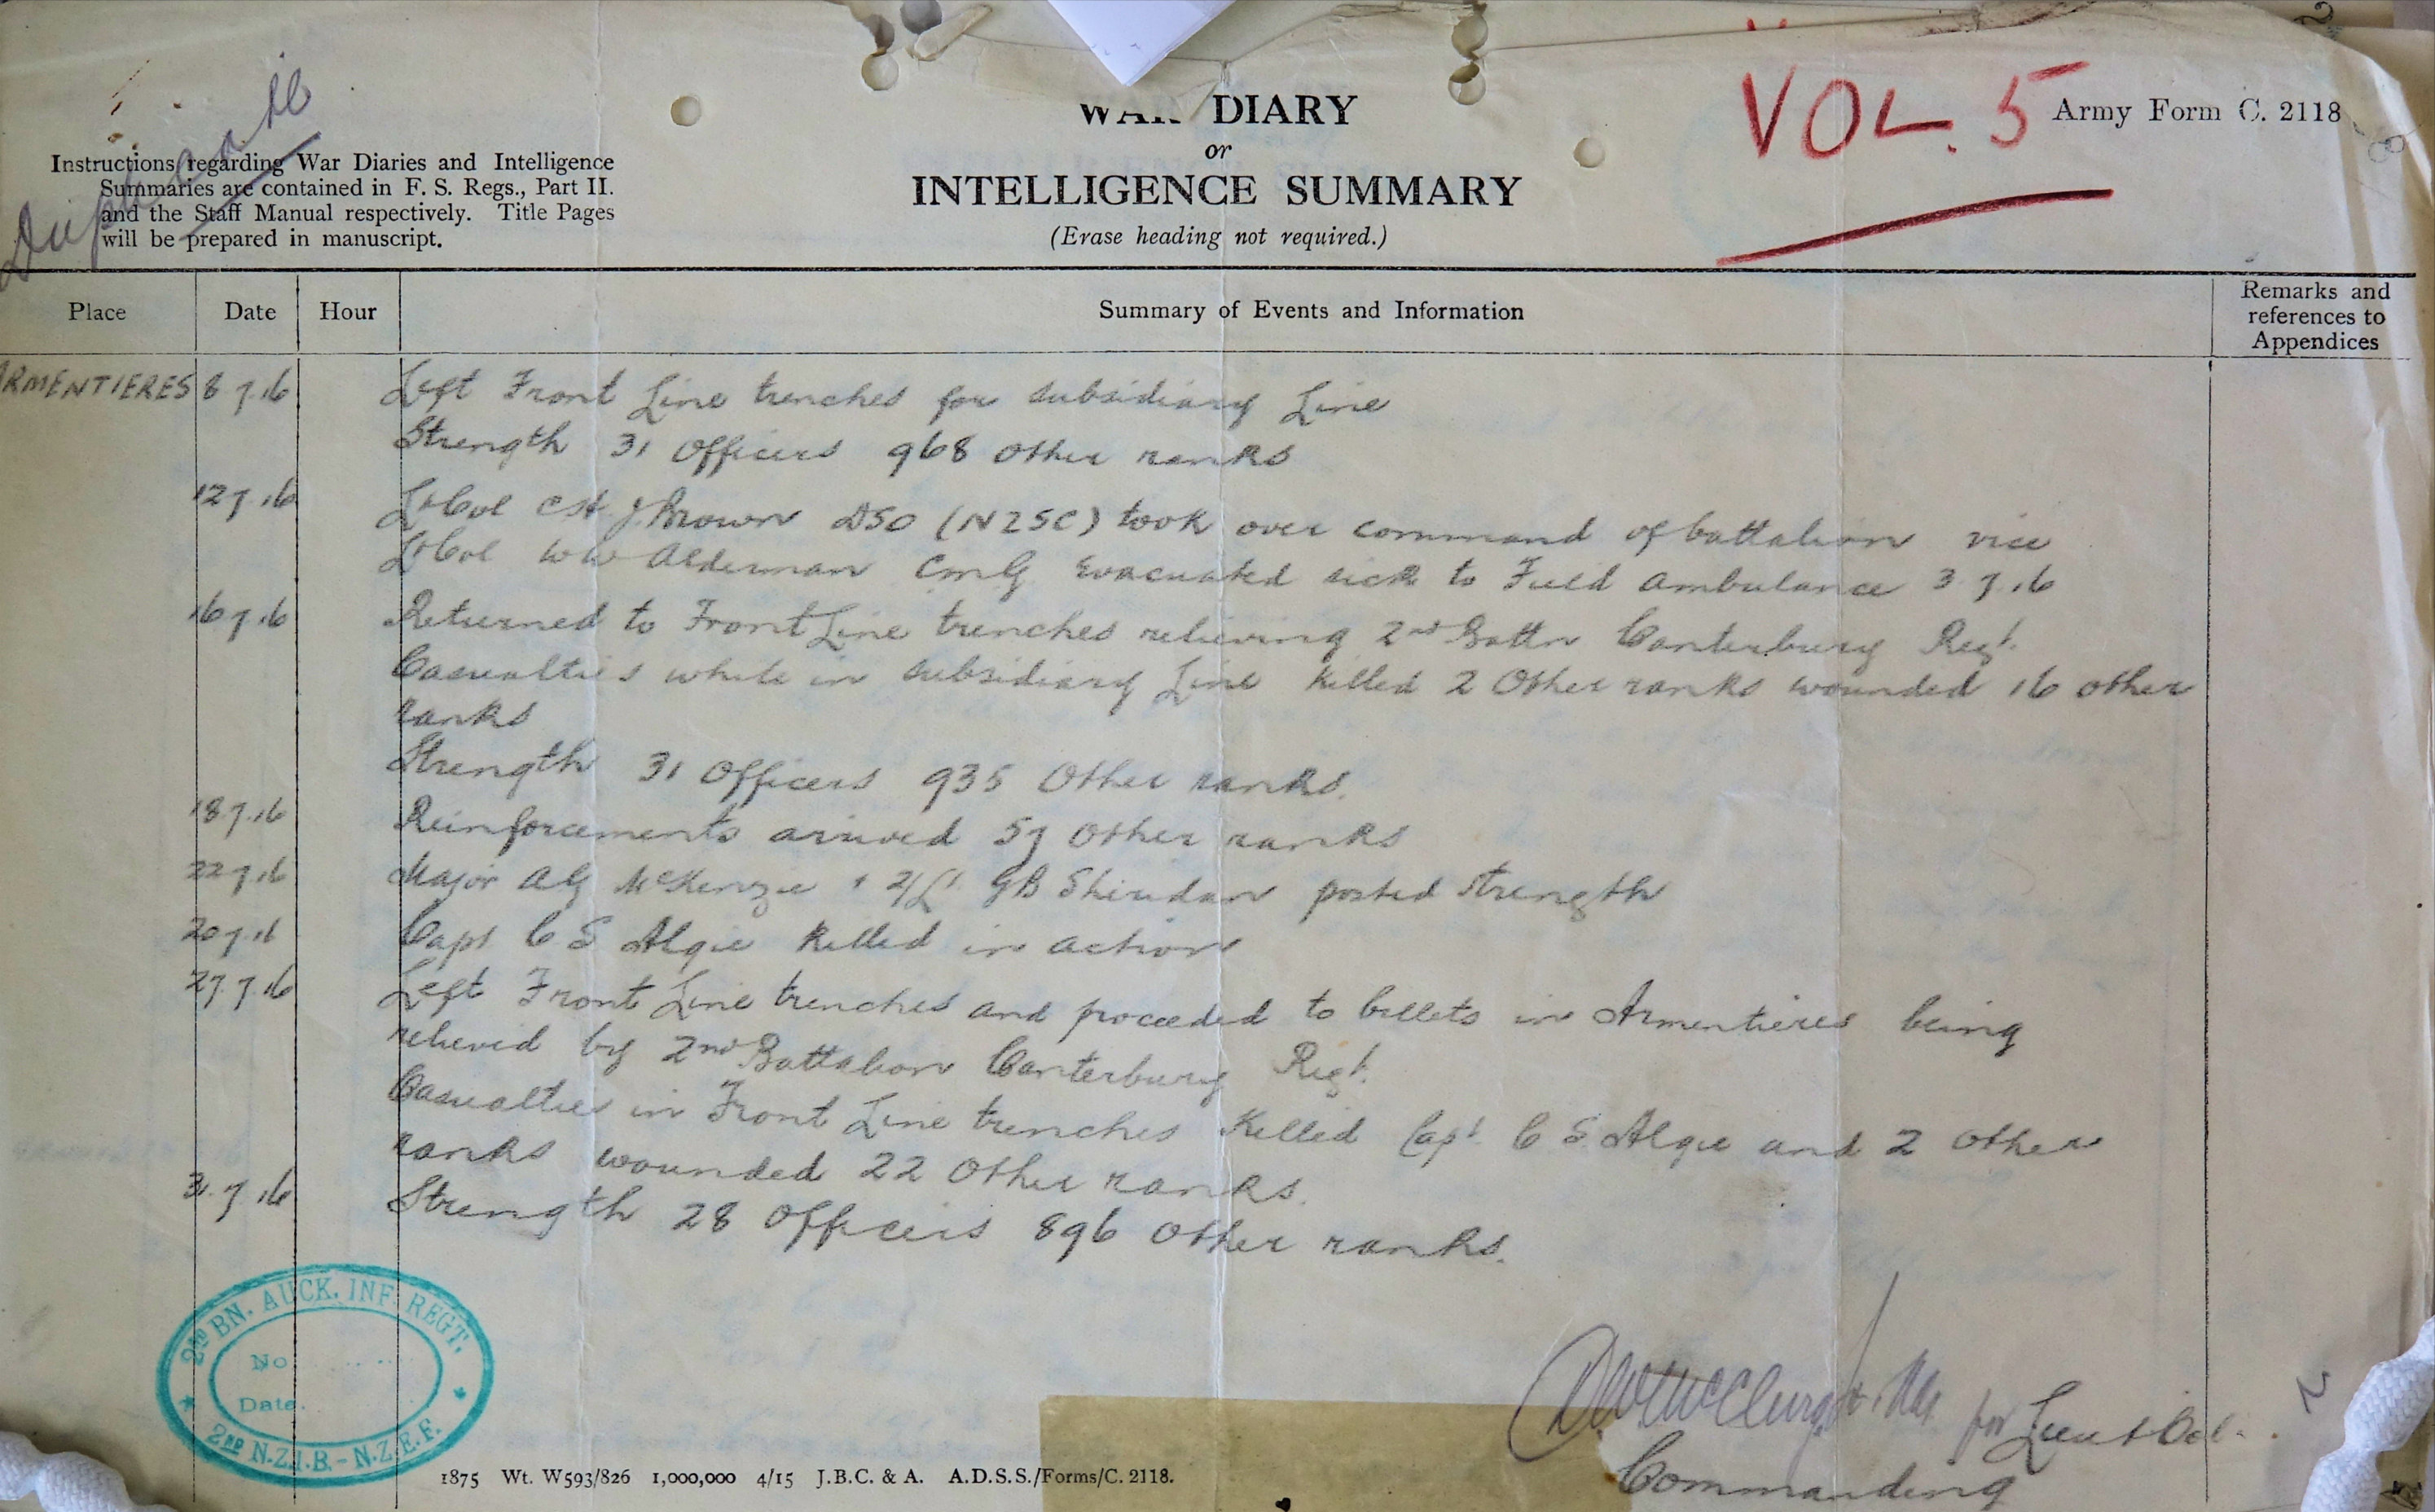 Duplicate
VOL. 5
Army Form C. 2118
WAR DIARY
or
INTELLIGENCE SUMMARY
(Erase heading not required.)
Instructions regarding War Diaries and Intelligence
Summaries are contained in F. S. Regs., Part II.
and the Staff Manual respectively. Title Pages
will be prepared in manuscript.
Place Date Hour Summary of Events and Information Remarks and
references to
Appendices
ARMENTIERES 8 7.16 Left Front Line trenches for subsidiary Line
Strength 31 Officers 968 other ranks
12 7.16 Lt Col CHJ Brown DSO (NZSC) took over command of battalion vice
Lt Col WW Alderman CMG Evacuated sick to Field Ambulance 3 7.16
16 7.16 Returned to Front Line trenches relieving 2nd Battn Canterbury Regt.
Casualties while in subsidiary Line Killed 2 Other ranks wounded 16 other
ranks
Strength 31 Officers 935 Other ranks.
18.7.16 Reinforcements arrived 57 Other ranks
22 7.16 Major AG McKenzie & 2/Lt GB Sheridan posted strength
20 7.16 Capt C S Algie Killed in action
27.7.16 Left Front Line trenches and proceeded to billets in Armentieres being
relieved by 2nd Battalion Canterbury Regt.
Casualties in Front Line trenches Killed Capt C S. Algie and 2 other
ranks wounded 22 Other ranks.
31.7.16 Strength 28 Officers 896 Other ranks.
2ND BN. AUCK. INF. REGT.
No.
Date.
2ND N.Z.I.B. - N.Z.E.F.
for Lieut Col.
Commanding
2
1875 Wt. W593/826 1,000,000 4/15 J.B.C. & A. A.D.S.S./Forms/C. 2118.